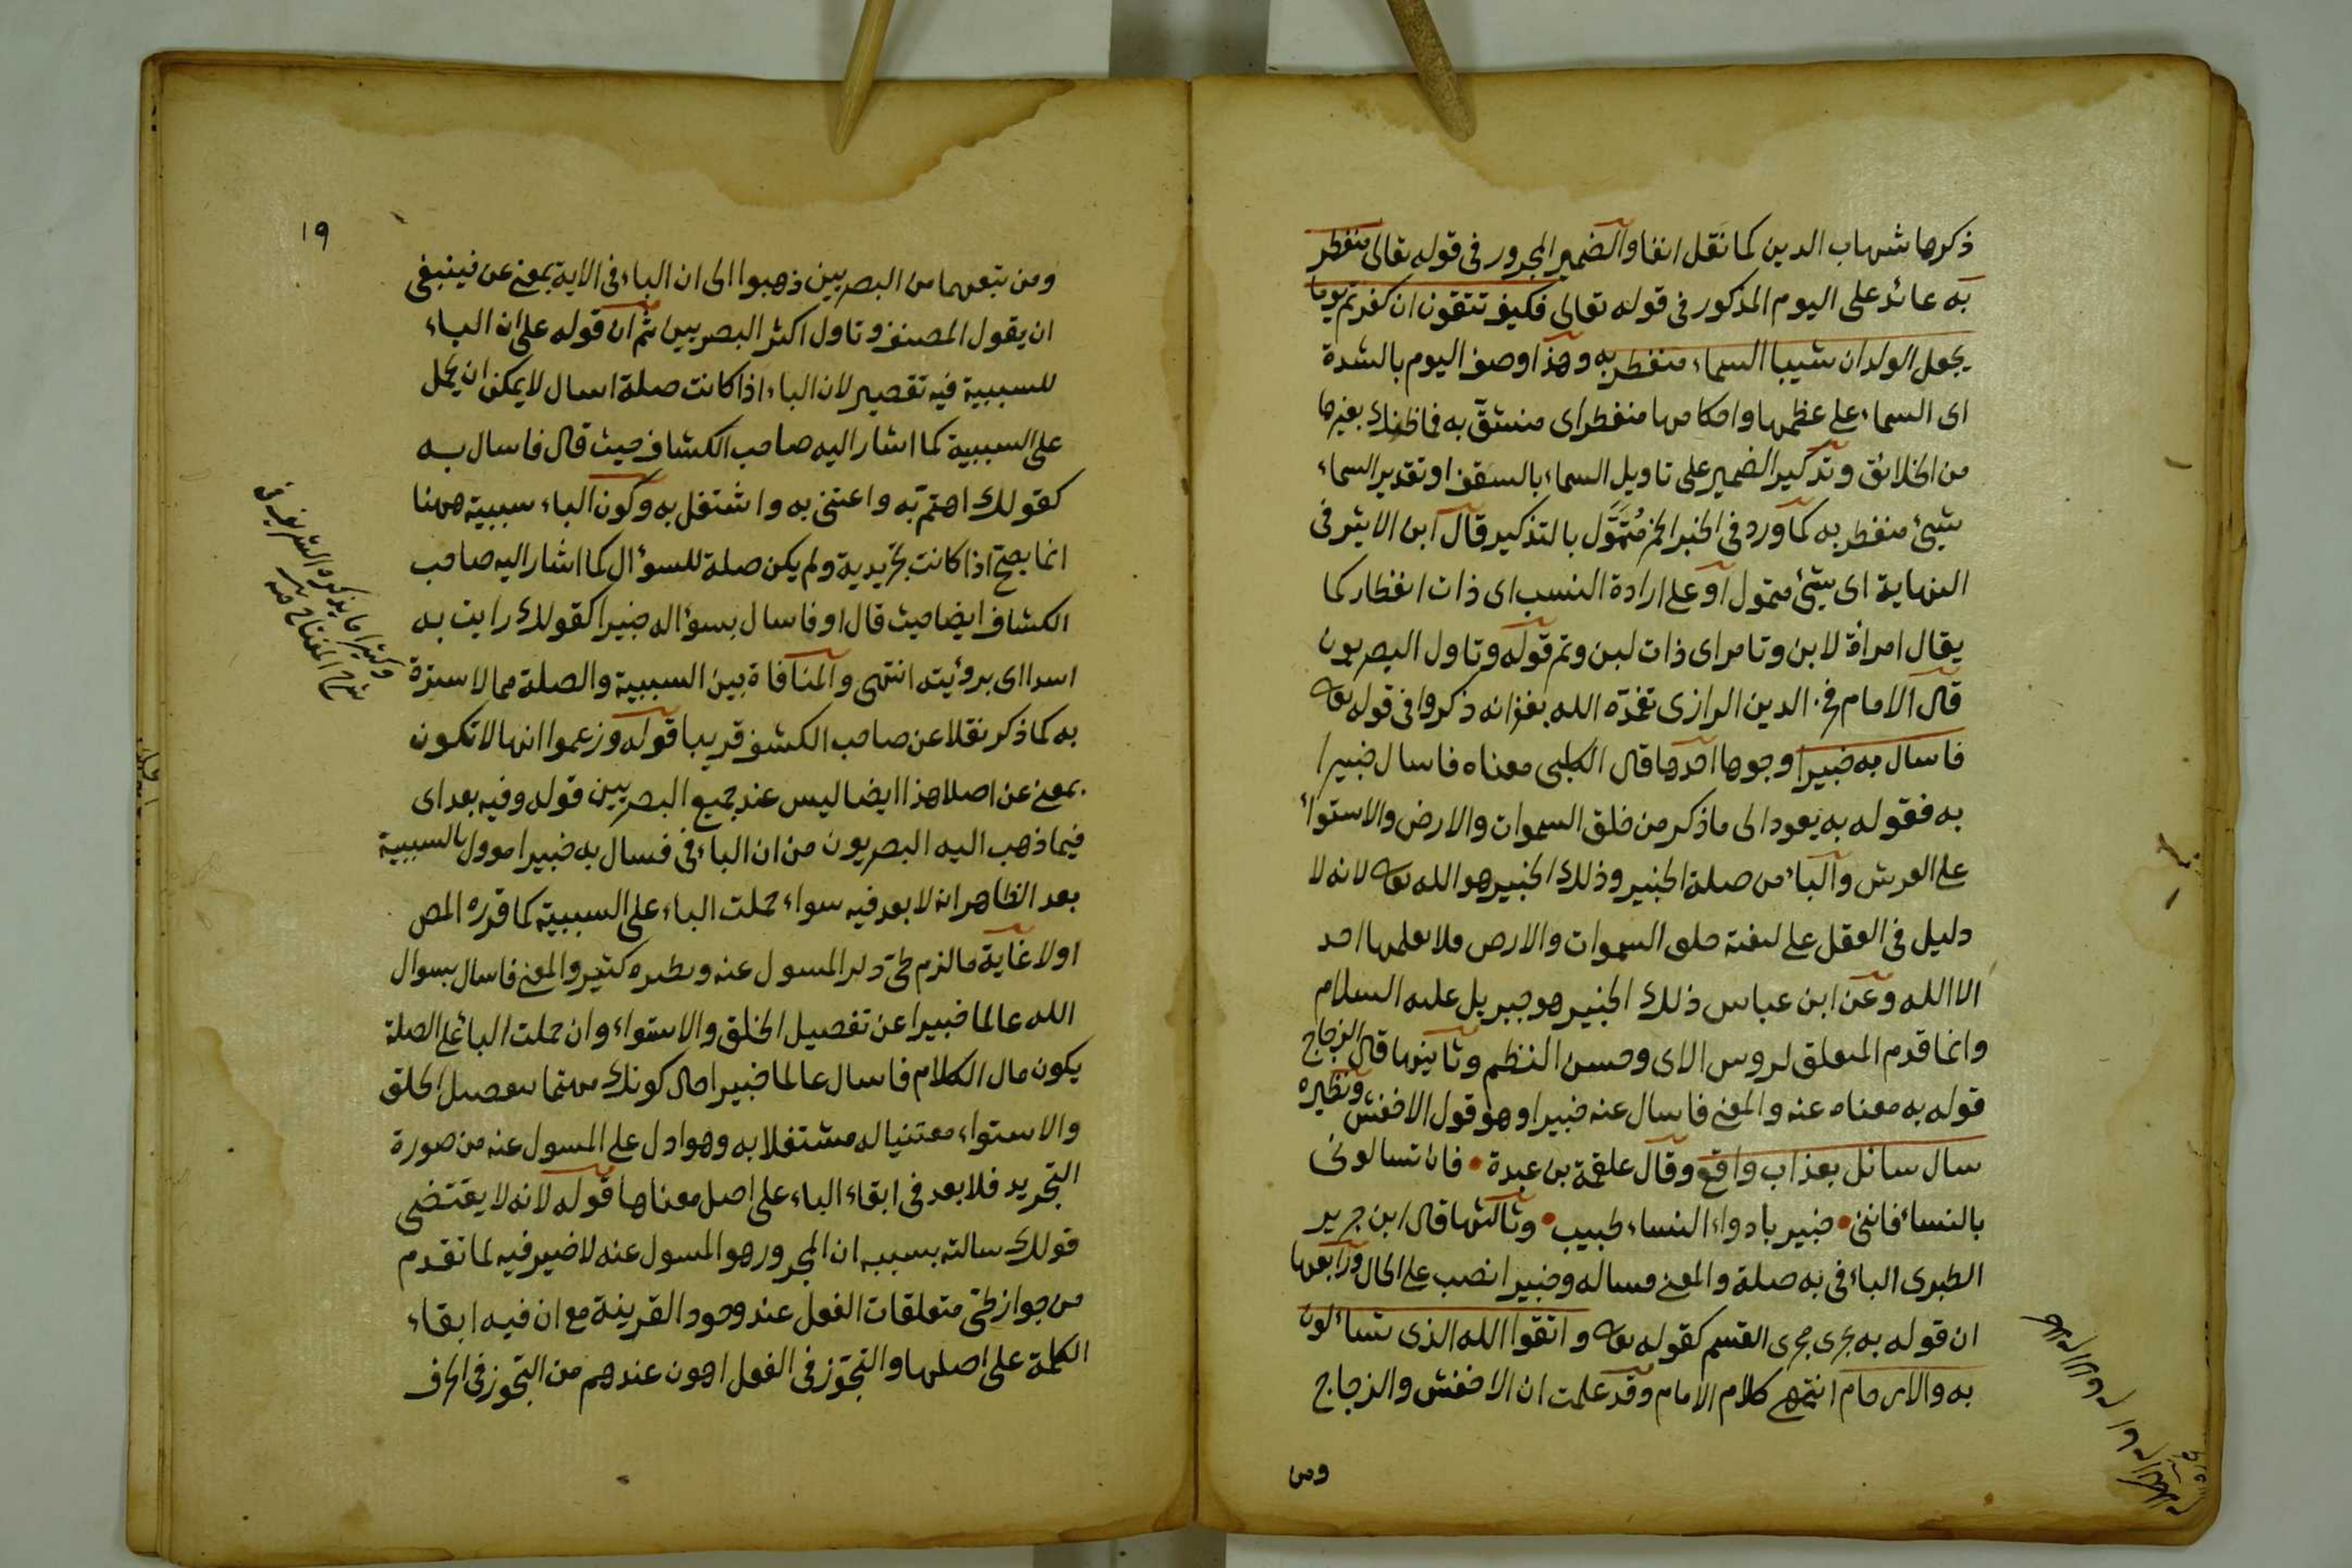 ذكرها شهاب الدين كما نقل انفا والضمير المجرور فى قوله تعالى منفطر
به عائد على اليوم المذكور فى قوله تعالى فكيف تتقون ان كفرتم يوما
يجعل الولدان شيبا السماء منفطر به وهذا وصف اليوم بالشدة
اى السماء على عظمها واحكامها منفطر اى منشقّ به فما ظنك بغيرها
من الخلائق وتذكير الضمير على تاويل السماء بالسقف او تقدير السماء
شيئ منفطر به كما ورد فى الخبر الخز مُتَمَوَّل بالتذكير قال ابن الاثير فى
النهاية اى شيئ متمول او على ارادة النسب اى ذات انفطار كما
يقال امرأة لابن وتامر اى ذات لبن وتمر قوله وتاول البصريون
قال الامام فخر الدين الرازى تغمّده الله بغفرانه ذكروا فى قوله تعا
فاسال به خبيرا وجوها احدها قال الكلبى معناه فاسال خبيرا
به فقوله به يعود الى ما ذكر من خلق السموات والارض والاستواء
على العرش والباء من صلة الخبير وذلك الخبير هو الله تعا لانه لا
دليل فى العقل على كيفية خلق السموات والارض فلا يعلمها احد
الا الله وعن ابن عباس ذلك الخبير هو جبريل عليه السلام
وانما قدم المتعلق لروس الاى وحسن النظم وثانيها قال الزجاج
قوله به معناه عنه والمعنى فاسال عنه خبيرا وهو قول الاخفش ونظيره
سال سائل بعذاب واقع وقال علقمة بن عبدة • فان تسالونى
بالنساء فاننى • خبير بادواء النساء طبيب • وثالثها قال ابن جرير
الطبرى الباء فى به صلة والمعنى فساله وخبيرا نصب على الحال ورابعها
ان قوله به يجرى مجرى القسم كقوله تعا واتقوا الله الذى تساءلون
به والارحام انتهى كلام الامام وقد علمت ان الاخفش والزجاج
ومن
١٩
ومن تبعهما من البصريين ذهبوا الى ان الباء فى الاية بمعنى عن فينبغى
ان يقول المصنف وتاول اكثر البصريين ثم ان قوله على ان الباء
للسببية فيه تقصير لان الباء اذا كانت صلة اسال لا يمكن ان يحمل
على السببية كما اشار اليه صاحب الكشاف حيث قال فاسال به
كقولك اهتمّ به واعتنى به واشتغل به وكون الباء سببية ههنا
انما يصح اذا كانت تجريدية ولم يكن صلة للسؤال كما اشار اليه صاحب
الكشاف ايضا حيث قال او فاسال بسؤاله خبيرا كقولك رايت به
اسدا اى برؤيته انتهى والمنافاة بين السببية والصلة مما لا سترة
به كما ذكر نقلا عن صاحب الكشف قريبا قوله وزعموا انها لا تكون
بمعنى عن اصلا هذا ايضا ليس عند جميع البصريين قوله وفيه بعد اى
فيما ذهب اليه البصريون من ان الباء فى فسال به خبيرا موول بالسببية
بعد الظاهر انه لا بعد فيه سواء حملت الباء على السببية كما قرره المص
اولا غاية ما لزم طىّ ذكر المسول عنه ونظيره كثير والمعنى فاسال بسوال
الله عالما خبيرا عن تفصيل الخلق والاستواء وان حملت الباء على الصلة
يكون مال الكلام فاسال عالما خبيرا حال كونك مهتما بتفصيل الخلق
والاستواء معتنيا له مشتغلا به وهو ادل على المسول عنه من صورة
التجريد فلا بعد فى ابقاء الباء على اصل معناها قوله لانه لا يقتضى
قولك سالته بسببه ان المجرور هو المسول عنه لا ضير فيه لما تقدم
من جواز طىّ متعلقات الفعل عند وجود القرينة مع ان فيه ابقاء
الكلمة على اصلها والتجوّز فى الفعل اهون عندهم من التجوز فى الحرف
وكثيرا ما يذكره الشريف فى
شرح المفتاح منه